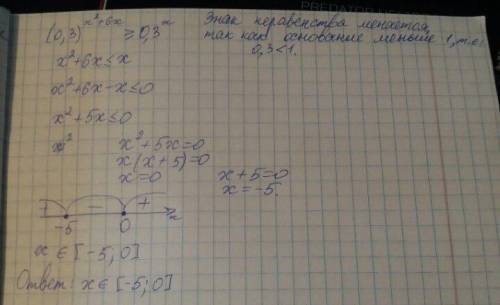 (0,3)^{x²+6x} ≥ 0,3^x
Знак неравенства меняется,
так как основание меньше 1, т.е.
0,3<1.
x²+6x≤x
x²+6x-x≤0
x²+5x≤0
x²+5x=0
x(x+5)=0
x=0 x+5=0
x=-5.
+ - + x
-5 0
x∈[-5;0]
Ответ: x∈[-5;0]